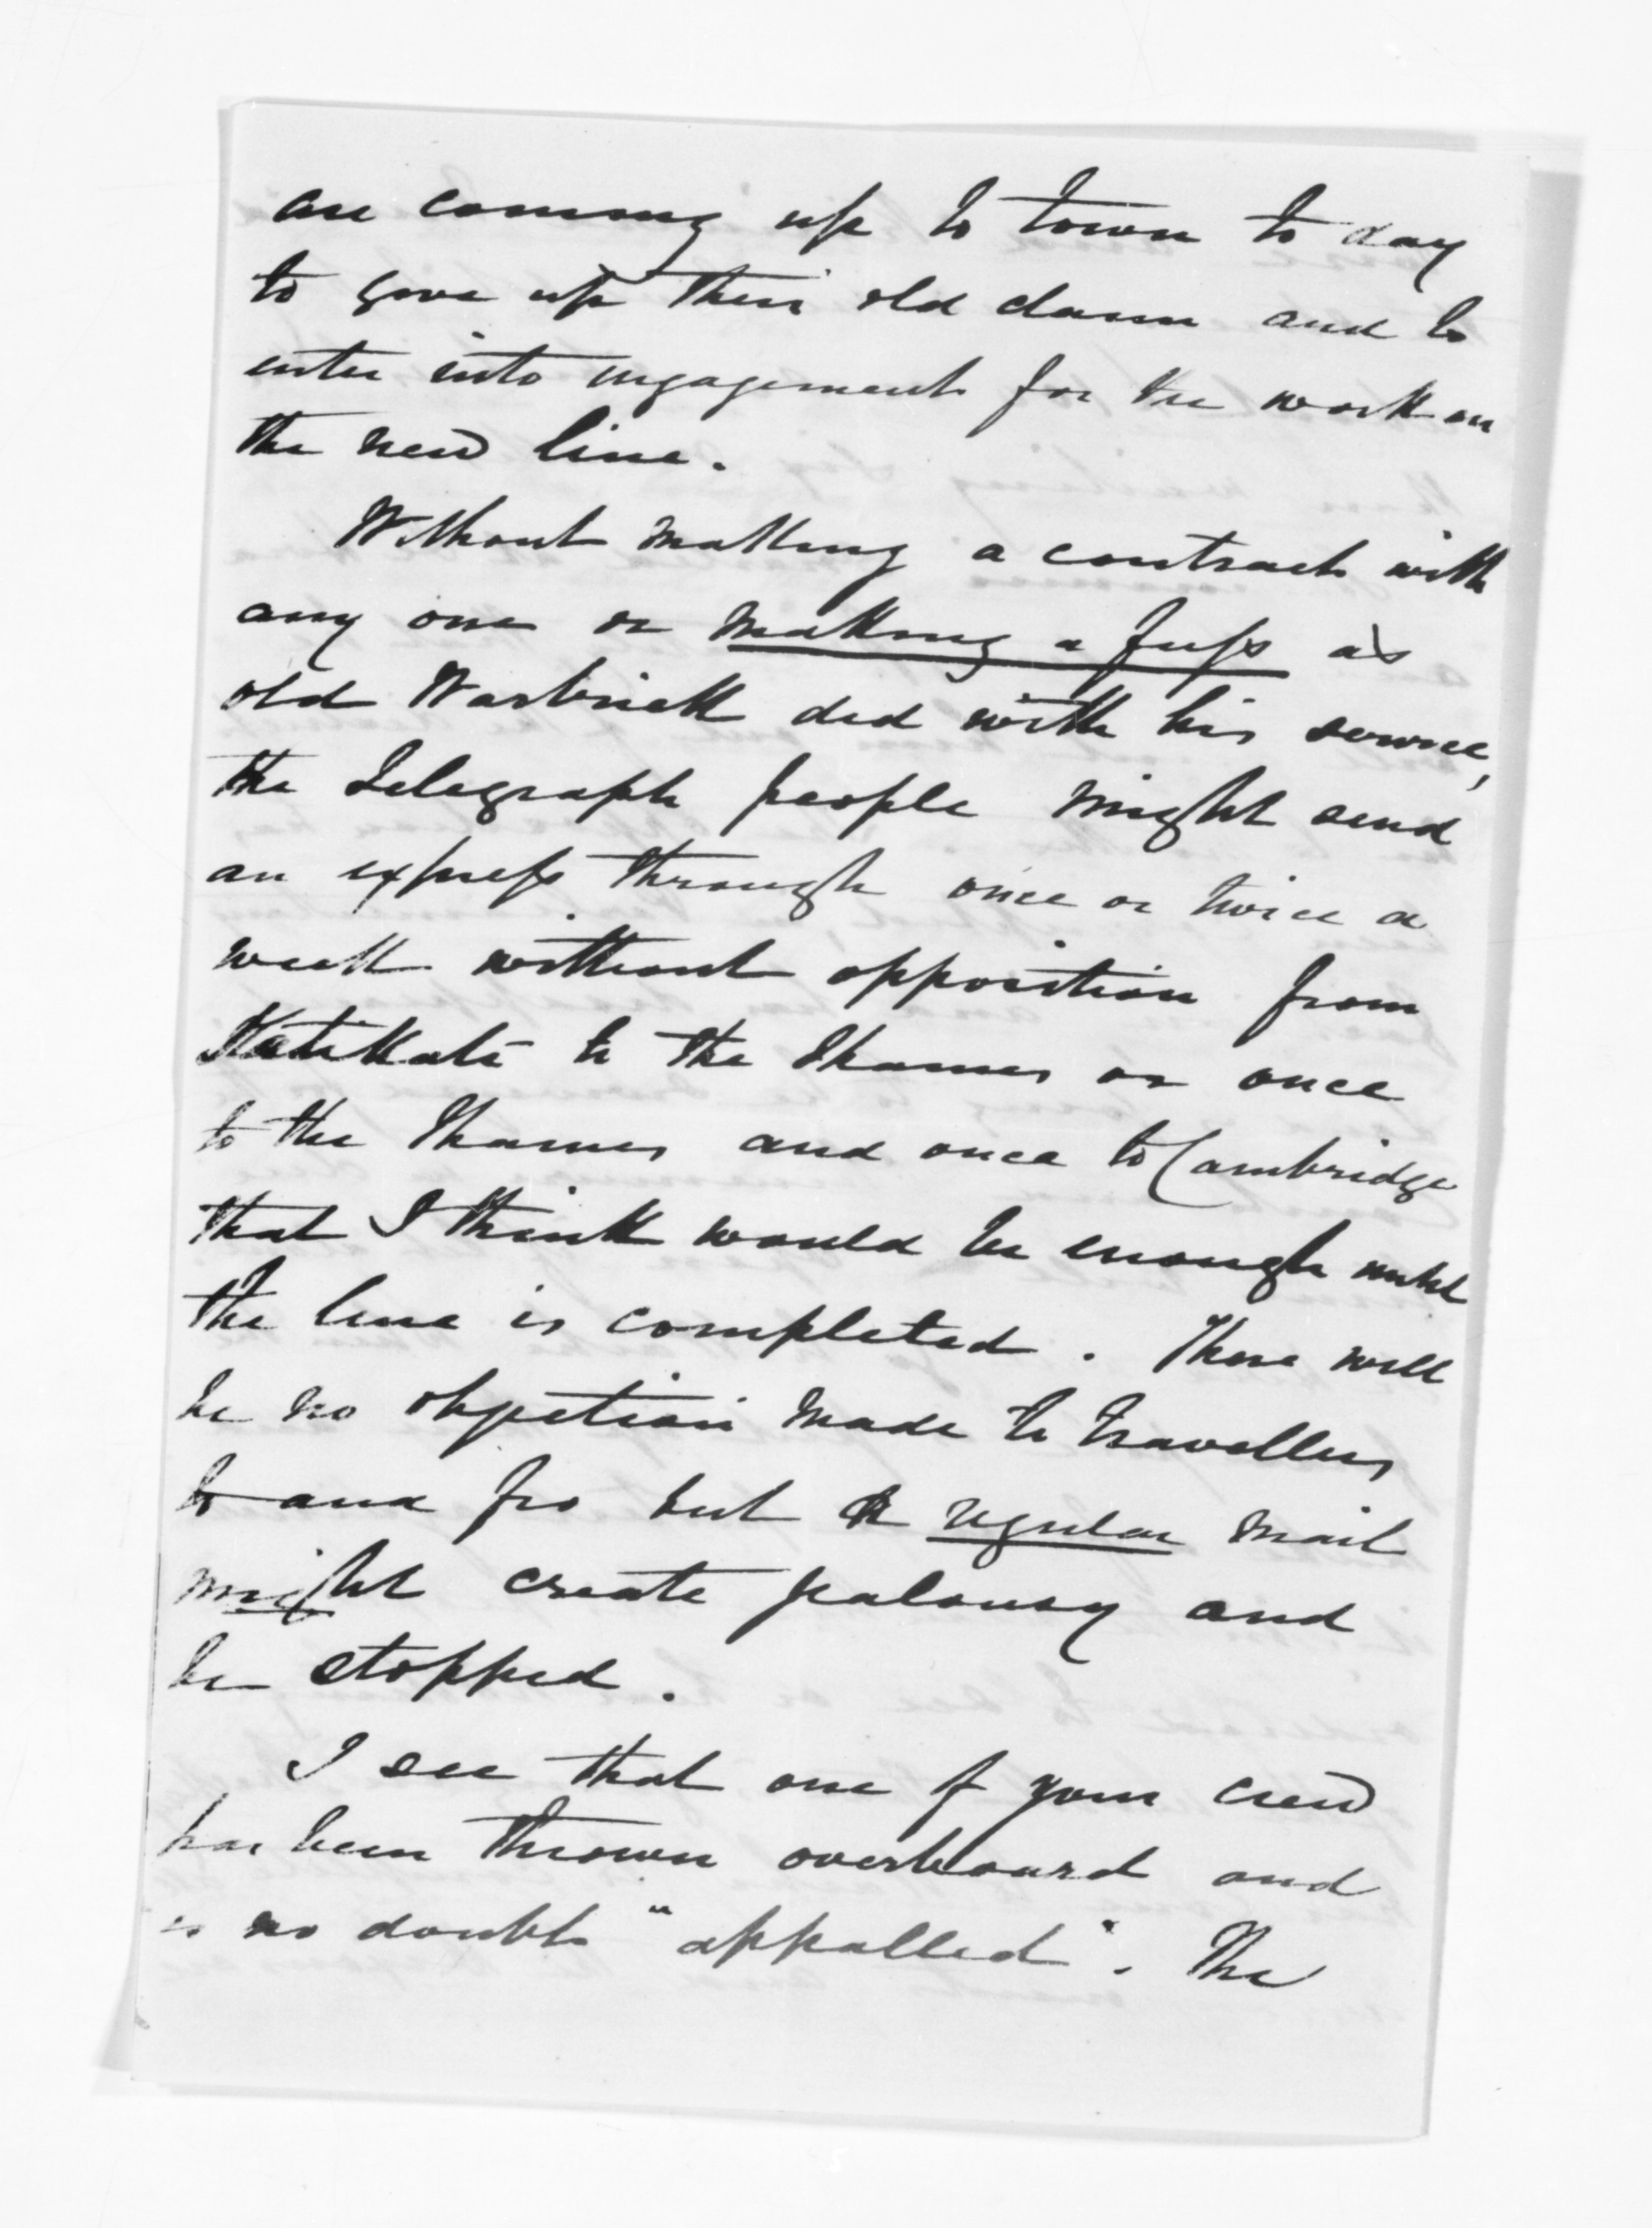 are coming up to town to day
to give up their old claim and to
enter into engagement for the work on
the new line.
Without making a contract with
any one or making a fuss as
old Warbrick did with his service,
the Telegraph people might send
an express through once or twice a
week without opposition from
Katikati to the Thames or once
to the Thames and once to Cambridge
that I think would be enough until
the line is completed. There will
be no objection made to travellers
to and fro but a regular mail
might create jealousy and
be stopped.
I see that one of your crew
has been thrown overboard and
is no doubt "appalled". The